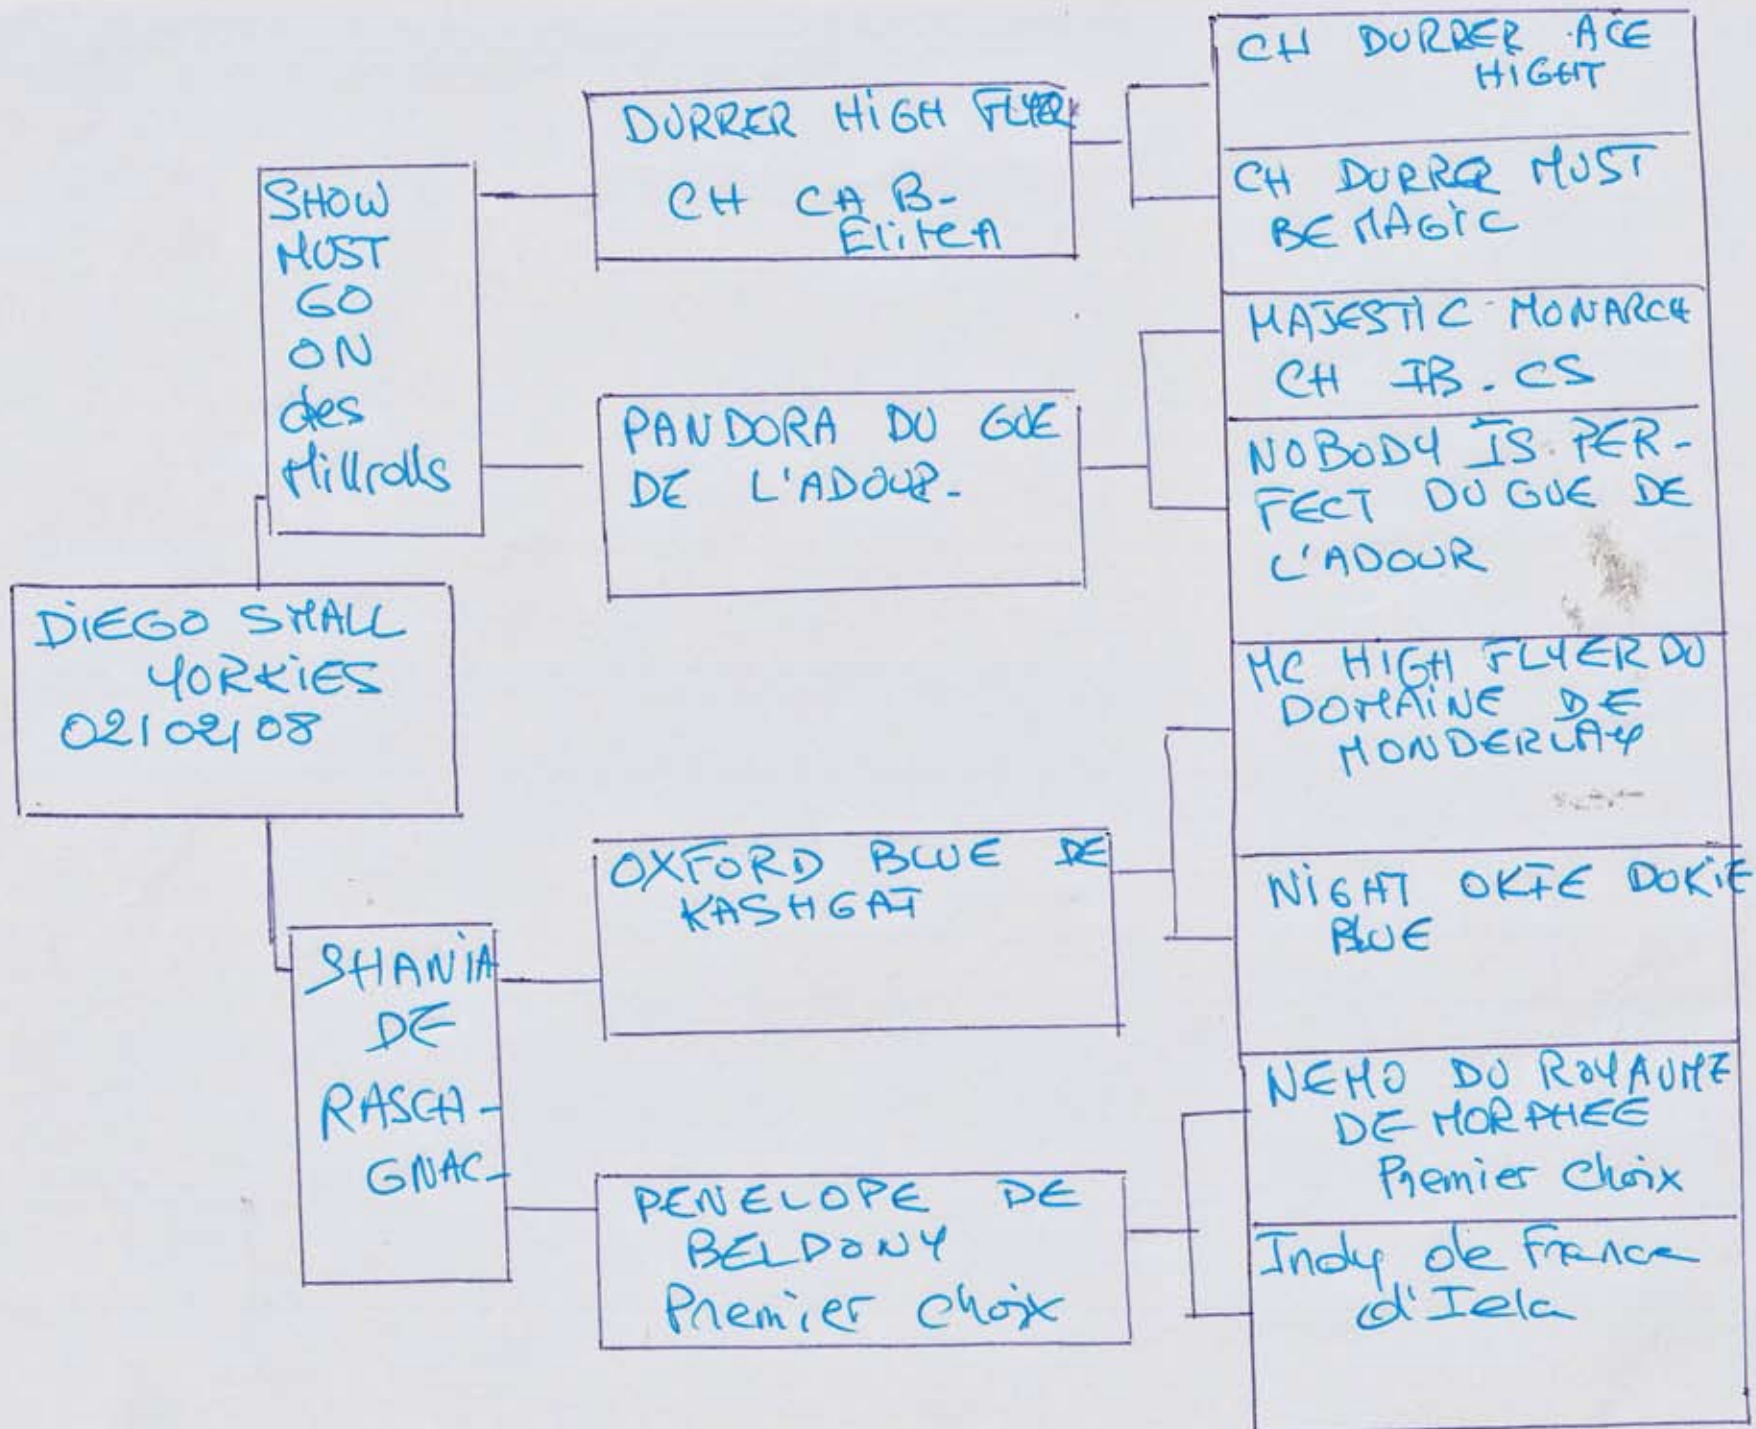 DiEGO SMALL
YORKiES
02/02/08
SHOW
MUST
GO
ON
des
Millrolls
SHANiA
DE
RASCHA-
GNAC-
DURRER HiGH FLYER
CH CA B-
EliteA
PANDORA DU GUE
DE L'ADOUR-
OXFORD BLUE DE
KASHGAI
PENELOPE DE
BELDONY
Premier Choix
CH DURRER ACE
HIGHT
CH DURRER MUST
BE MAGIC
MAJESTIC MONARCH
CH IB. CS
NOBODY IS PER-
FECT DU GUE DE
L'ADOUR
MC HIGH FLYER DU
DOMAINE DE
MONDERLAY
NIGHT OKIE DOKIE
BLUE
NEMO DU ROYAUME
DE MORPHEE
Premier Choix
Indy de France
d'Iela